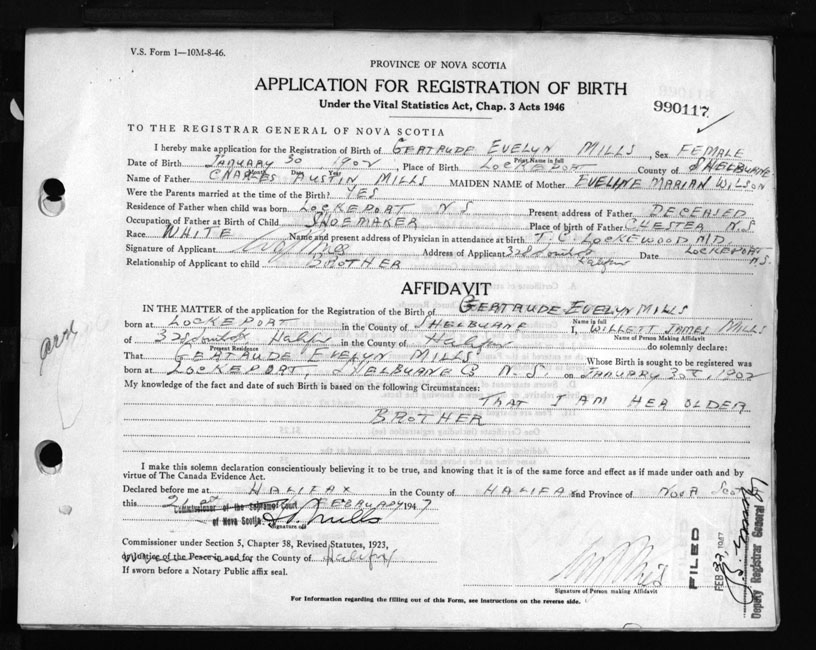 V.S. Form 1—10M-8-46.
PROVINCE OF NOVA SCOTIA
APPLICATION FOR REGISTRATION OF BIRTH
Under the Vital Statistics Act, Chap. 3 Acts 1946
990117
TO THE REGISTRAR GENERAL OF NOVA SCOTIA
I hereby make application for the Registration of Birth of GERTRUDE EVELYN MILLS, Sex FEMALE
Print Name in full
Date of Birth JANUARY 30, 1902, Place of Birth LOCKEPORT County of SHELBURNE
Name of Father CHARLES AUSTIN MILLS MAIDEN NAME of Mother EVELINE MARIAN WILSON
Were the Parents married at the time of the Birth? YES
Residence of Father when child was born LOCKEPORT N S Present address of Father DECEASED
Occupation of Father at Birth of Child SHOEMAKER Place of birth of Father CHESTER N.S
Race WHITE Name and present address of Physician in attendance at birth T. C. LOCKEWOOD M.D.
Signature of Applicant Address of Applicant 328 Halifax Date LOCKEPORT N.S.
Relationship of Applicant to child BROTHER
AFFIDAVIT
IN THE MATTER of the application for the Registration of the Birth of GERTRUDE EVELYN MILLS
Name in full
born at LOCKEPORT in the County of SHELBURNE I, WILLETT JAMES MILLS
Name of Person Making Affidavit
of 328 Halifax in the County of Halifax do solemnly declare:
Present Residence
That GERTRUDE EVELYN MILLS Whose Birth is sought to be registered was
born at LOCKEPORT, SHELBURNE Co N.S. on JANUARY 30th, 1902
My knowledge of the fact and date of such Birth is based on the following Circumstances:
THAT I AM HER OLDER
BROTHER
I make this solemn declaration conscientiously believing it to be true, and knowing that it is of the same force and effect as if made under oath and by
virtue of The Canada Evidence Act.
Declared before me at HALIFAX in the County of HALIFAX and Province of NOVA SCOT
this 21st FEBRUARY 1947
Commissioner of the Supreme Court
of Nova Scotia
Signature of
Commissioner under Section 5, Chapter 38, Revised Statutes, 1923,
or Justice of the Peace in and for the County of Halifax
If sworn before a Notary Public affix seal.
Signature of Person making Affidavit
For Information regarding the filling out of this Form, see instructions on the reverse side.
FILED
FEB 1947
Deputy Registrar General